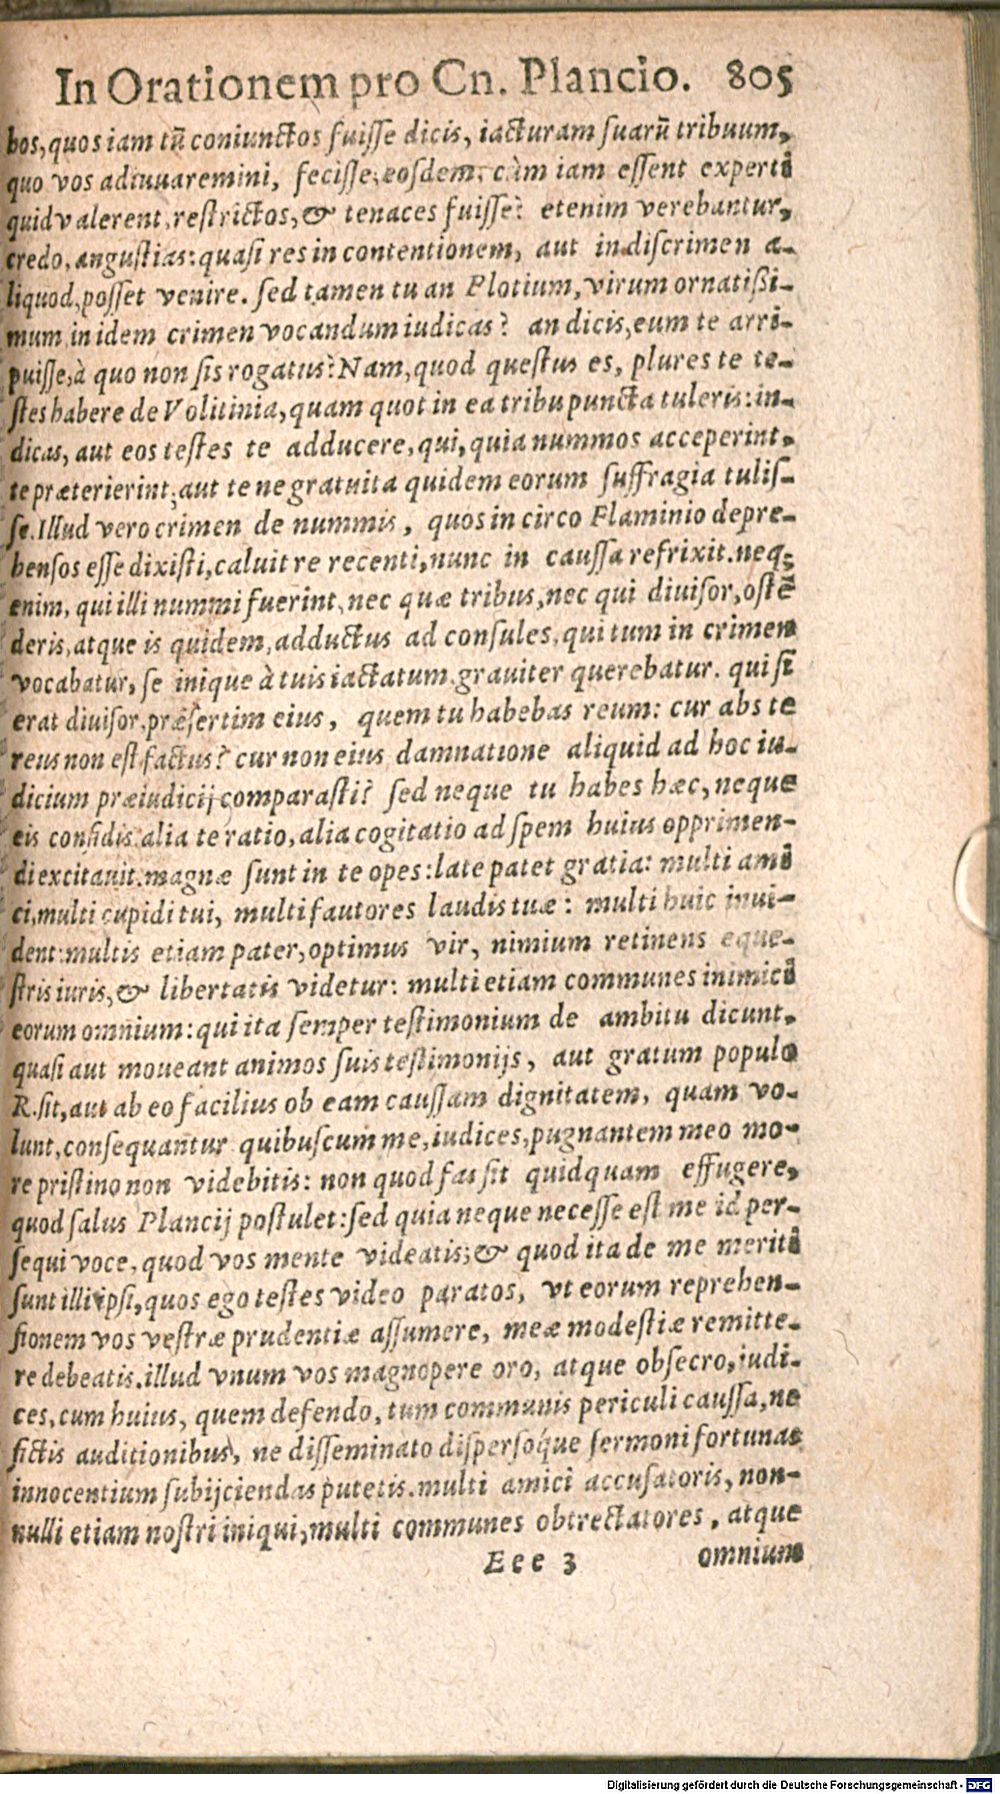 In Orationem pro Cn. Plancio. 805
bos, quos iam tū coniunctos fuiſſe dicis, iacturam ſuarū tribuum,
quo vos adiuuaremini, feciſſe; eosdem, càm iam eſſent experti
quid valerent, reſtrictos, & tenaces fuiſſe? etenim verebantur,
credo, anguſtias: quaſi res in contentionem, aut in diſcrimen a-
liquod, poſſet venire. ſed tamen tu an Plotium, virum ornatißi-
mum, in idem crimen vocandum iudicas? an dicis, eum te arri-
puiſſe, à quo non ſis rogatus? Nam, quod queſtus es, plures te te-
ſtes habere de Volitinia, quam quot in ea tribu puncta tuleris: in-
dicas, aut eos teſtes te adducere, qui, quia nummos acceperint,
te præterierint; aut te ne gratuita quidem eorum ſuffragia tuliſ-
ſe. Illud vero crimen de nummis, quos in circo Flaminio depre-
henſos eſſe dixiſti, caluit re recenti, nunc in cauſſa refrixit. neq;
enim, qui illi nummi fuerint, nec quæ tribus, nec qui diuiſor, oſtē
deris, atque is quidem, adductus ad conſules, qui tum in crimen
vocabatur, ſe inique à tuis iactatum grauiter querebatur. qui ſi
erat diuiſor, præſertim eius, quem tu habebas reum: cur abs te
reus non eſt factus? cur non eius damnatione aliquid ad hoc iu-
dicium præiudicij comparaſti? ſed neque tu habes hæc, neque
eis confidis. alia te ratio, alia cogitatio ad ſpem huius opprimen-
di excitauit. magnæ ſunt in te opes: late patet gratia: multi ami
ci, multi cupidi tui, multi fautores laudis tuæ: multi huic inui-
dent: multis etiam pater, optimus vir, nimium retinens eque-
ſtris iuris, & libertatis videtur: multi etiam communes inimici
eorum omnium: qui ita ſemper teſtimonium de ambitu dicunt,
quaſi aut moueant animos ſuis teſtimonijs, aut gratum populo
R. ſit, aut ab eo facilius ob eam cauſſam dignitatem, quam vo-
lunt, conſequantur quibuſcum me, iudices, pugnantem meo mo-
re priſtino non videbitis: non quod fas ſit quidquam effugere,
quod ſalus Plancij poſtulet: ſed quia neque neceſſe eſt me id per-
ſequi voce, quod vos mente videatis; & quod ita de me meriti
ſunt illi ipſi, quos ego teſtes video paratos, vt eorum reprehen-
ſionem vos veſtræ prudentiæ aſſumere, meæ modeſtiæ remitte-
re debeatis. illud vnum vos magnopere oro, atque obſecro, iudi-
ces, cum huius, quem defendo, tum communis periculi cauſſa, ne
fictis auditionibus, ne diſſeminato diſperſóque ſermoni fortunas
innocentium ſubijciendas putetis. multi amici accuſatoris, non-
nulli etiam noſtri iniqui, multi communes obtrectatores, atque
Eee 3 omnium
Digitalisierung gefördert durch die Deutsche Forschungsgemeinschaft - DFG